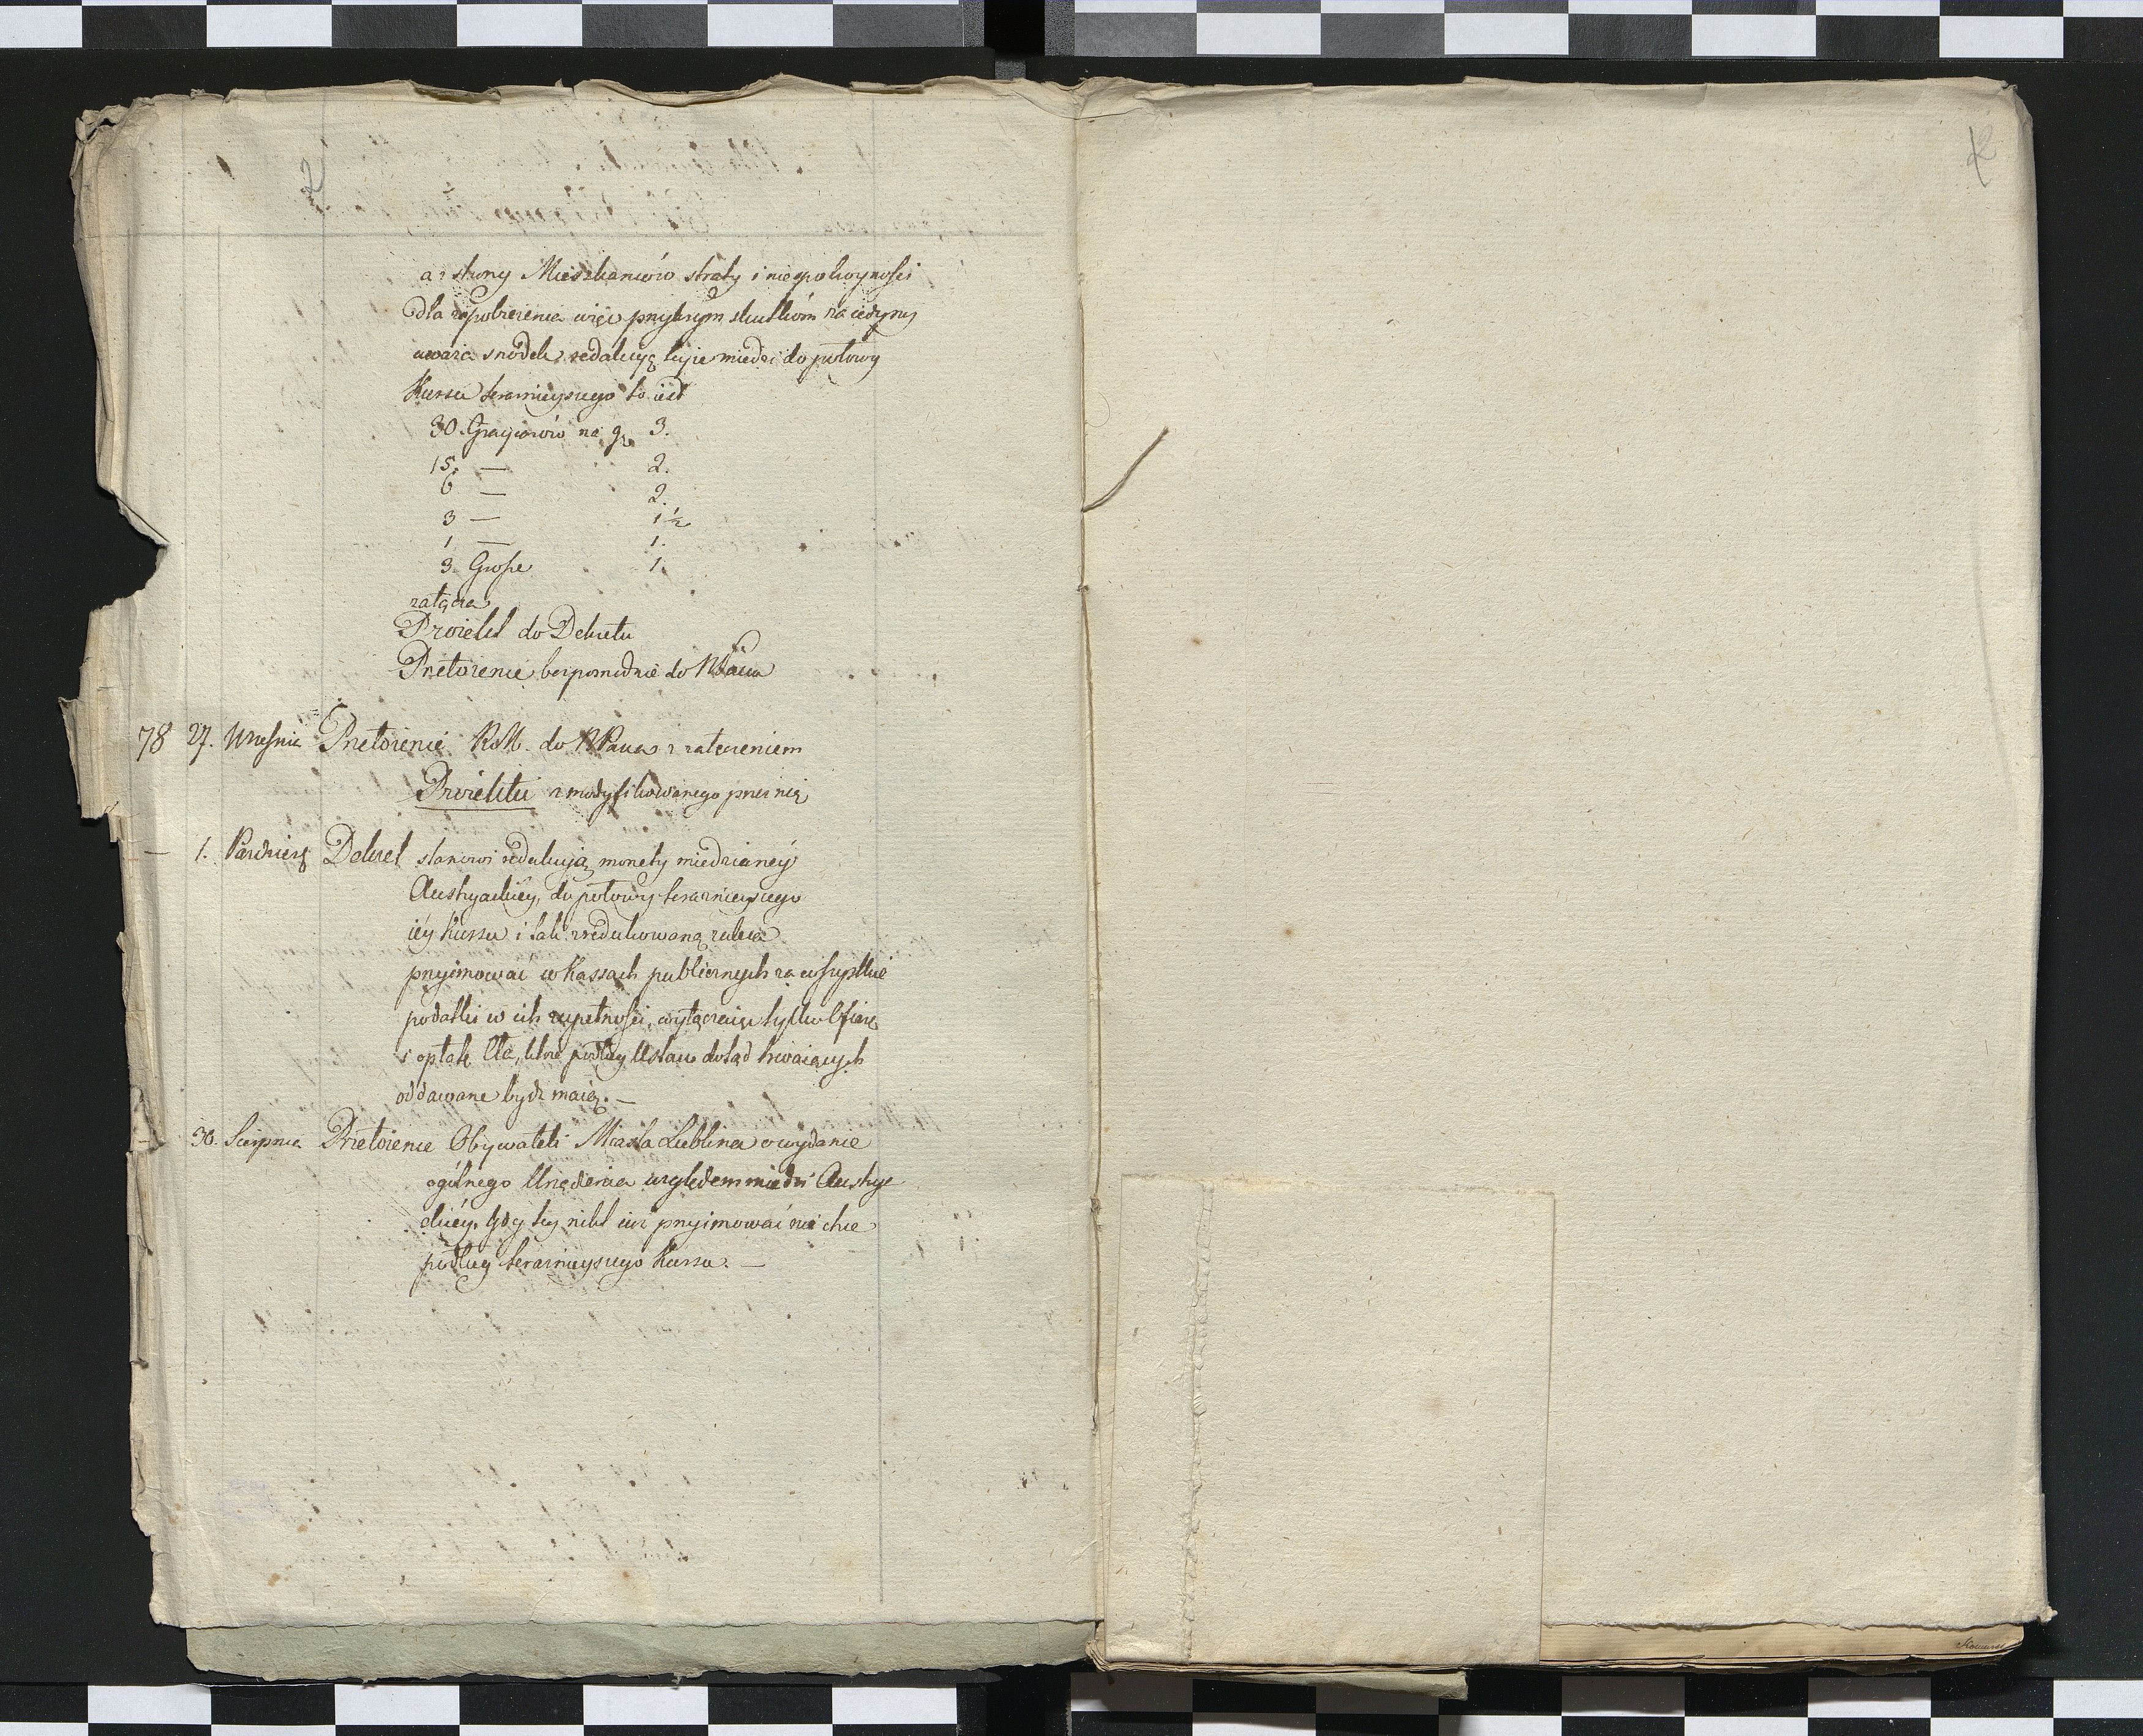 2
a z strony Mieszkańców straty i niespokoyności
dla zapobieżenia więc przykrym skutkóm za iedyny
uważa srodek, redukcyą teyże miedzi do połowy
Kursu teraznieyszego to iest
30. Graycarów na gr 3.
15. — 2.
6 — 2.
3 — 1½
1 — 1.
3. Grosze 1.
załącza
Proiekt do Dekretu
Przełożenie bezpośrednie do NPana
78 27. Wrześnie Przełożenie RM. do NPana z załączeniem
Proiektu zmodyfikowanego przez nią
— 1. Paździer Dekret stanowi redukcyją monety miedzianéy
Austryackiey, do połowy teraznieyszego
iéy Kursu i tak zredukowaną zaleca
przyimować w Kassach publicznych za wszystkie
podatki w ich zupełności, wyłączaiąc tylko Ofiarę
i opłatę Cła, które podług Ustaw dotąd trwaiących
oddawane bydź maią. —
— 30. Sierpnia Przełożenie Obywateli Miasta Lublina o wydanie
ogólnego Urządzenia względem miedzi Austrya
ckiéy, gdy téy nikt iuż przyimować nie chce
podług teraznieyszego Kursu. —
2